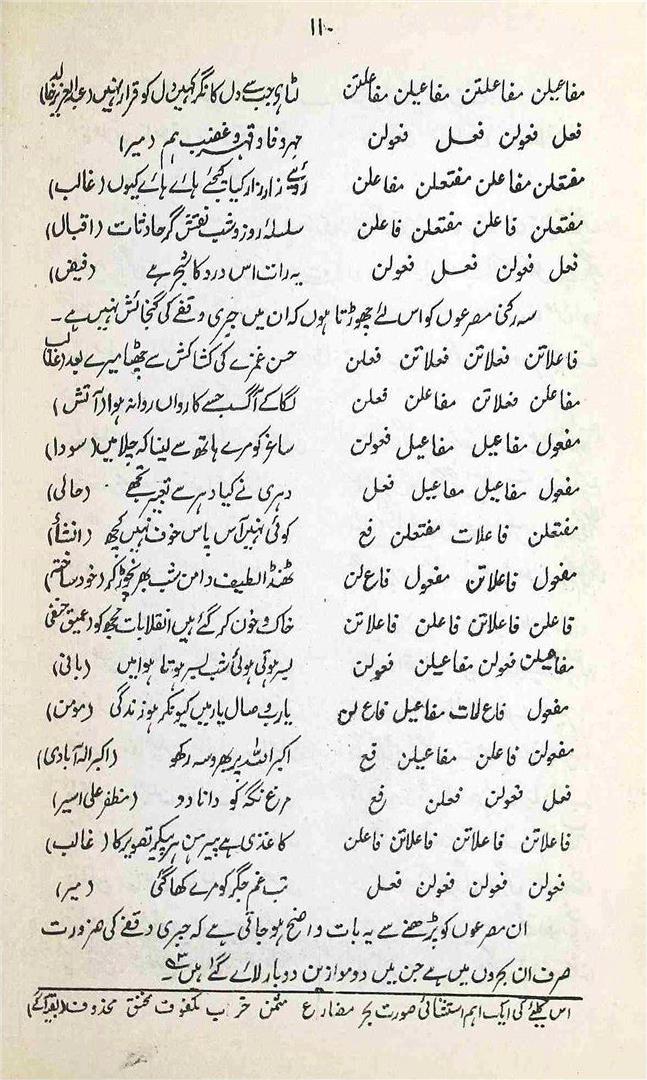 ۱۱۰
مفاعیلن مفاعلتن مفاعیلن مفاعلتن لٹا ہی جب سے دل کا نگر کہیں دل کو قرار نہیں (عبدالعزیز خالد)
فعل فعولن فعل فعولن مہر و وفا و قہر و غضب ہم (میر)
مفتعلن مفاعلن مفتعلن مفاعلن روئیے زار زار کیا کیجئے ہائے ہائے کیوں (غالب)
مفتعلن فاعلن مفتعلن فاعلن سلسلۂ روز و شب نقش گر حادثات (اقبال)
فعل فعولن فعل فعولن یہ رات اس درد کا شجر ہے (فیض)
سہ رکنی مصرعوں کو اس لئے چھوڑتا ہوں کہ ان میں جبری وقفے کی گنجائش نہیں ہے۔
فاعلاتن فعلاتن فعلاتن فعلن حسن غمزے کی کشاکش سے چھٹا میرے بعد (غالب)
مفاعلن فعلاتن مفاعلن فعلن لگا کے آگ جسے کارواں روانہ ہوا (آتش)
مفعول مفاعیل مفاعیل فعولن ساغر کو مرے ہاتھ سے لینا کہ چلا میں (سودا)
مفعول مفاعیل مفاعیل فعل دہری نے کیا دہر سے تعبیر تجھے (حالی)
مفتعلن فاعلات مفتعلن فع کوئی نہیں آس پاس خوف نہیں کچھ (انشأ)
مفعول فاعلاتن مفعول فاع لن ٹھنڈا لطیف دامن شب بھر نچوڑ کر (خود ساختہ)
فاعلن فاعلاتن فاعلن فاعلاتن خاک و خون کر گئے ہیں انقلابات تجھ کو (عمیق حنفی)
مفاعیلن فعولن مفاعیلن فعولن بسر ہوتی ہوئی شب بسر ہوتا ہوا میں (بانی)
مفعول فاعلات مفاعیل فاع لن یارب وصال یار میں کیونکر ہو زندگی (مومن)
مفعولن فاعلن مفاعیلن فع اکبر اللہ پر بھروسہ رکھو (اکبر الہ آبادی)
فعل فعولن فعلن فع مرغ نگہ کو دانا دو (مظفر علی اسیر)
فاعلاتن فاعلاتن فاعلاتن فاعلن کاغذی ہے پیرہن ہر پیکر تصویر کا (غالب)
فعولن فعولن فعولن فعل تب غم جگر کو مرے کھا گئی (میر)
ان مصرعوں کو پڑھنے سے یہ بات واضح ہو جاتی ہے کہ جبری وقفے کی ضرورت
صرف ان بحروں میں ہے جن میں دو موازین دو بار لائے گئے ہیں ۹۳۔
اس کلیئے کی ایک اہم استثنائی صورت بحر مضارع مثمن اخرب مکفوف مخنق محذوف (بقیہ آگے)